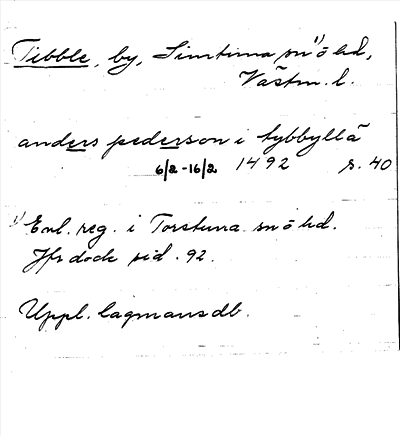 Tibble, by, Simtuna sn¹⁾ ö hd,
Västm. l.
anders pederson i tybbyllä
6/2-16/2 1492 s. 40
¹⁾ Enl. reg. i Torstuna sn ö hd.
Jfr dock sid. 92.
Uppl. lagmansdb.